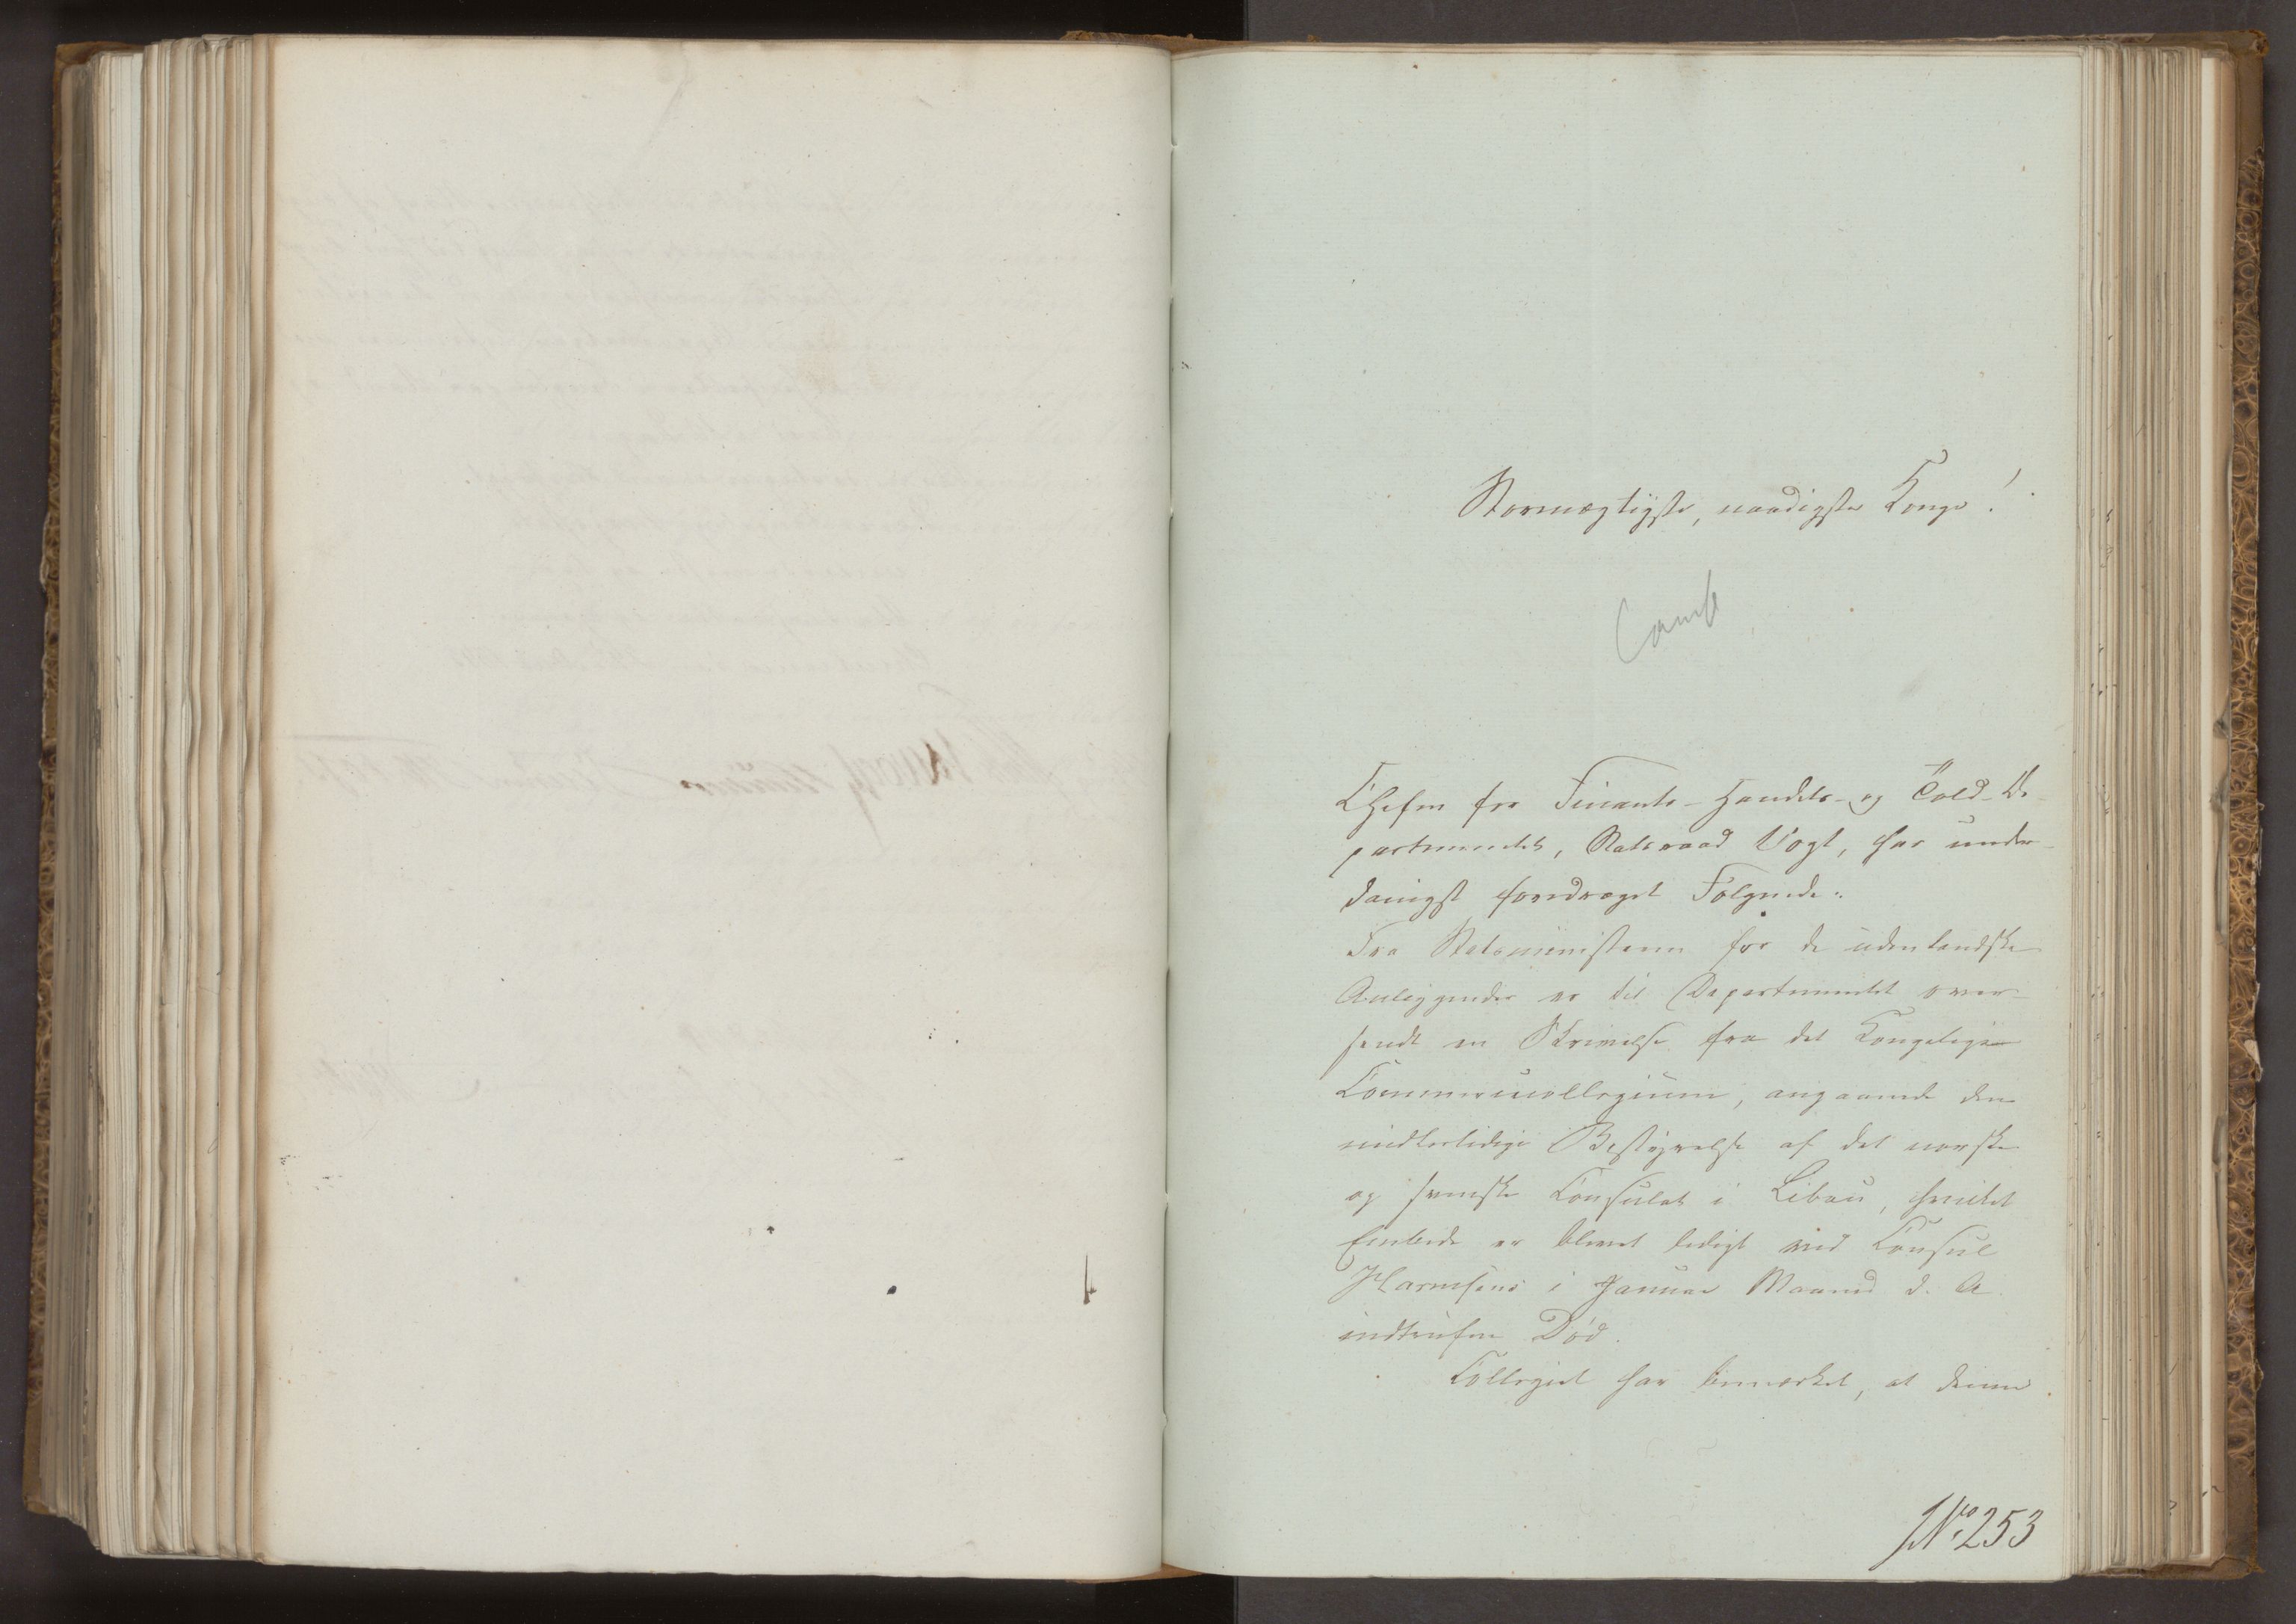 Stormægtigste, naadigste Konge!
Chefen for Finants- Handels- og Told-De-
partementet, Statsraad Vogt, har under-
danigst foredraget Følgende:
Fra Statsministeren for de udenlandske
Anliggender er til Departementet over-
sendt en Skrivelse fra det Kongelige
Commercecollegium, angaaende den
midlertidige Bestyrelse af det norske
og svenske Consulat i Libau, hvilket
Embede er blevet ledigt ved Consul
Harmsens i Januar Maaned d. A.
indtrufne Død.
Collegiet har bemærket, at denne
No. 253